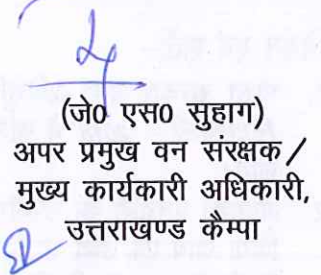 (जे० एस० सुहाग)
अपर प्रमुख वन संरक्षक/
मुख्य कार्यकारी अधिकारी,
उत्तराखण्ड कैम्पा